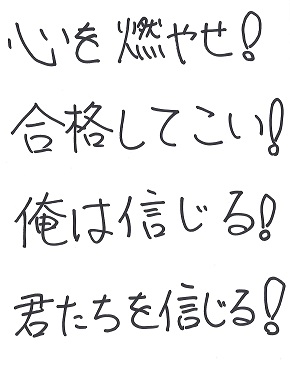 心を燃やせ!
合格してこい!
俺は信じる!
君たちを信じる!